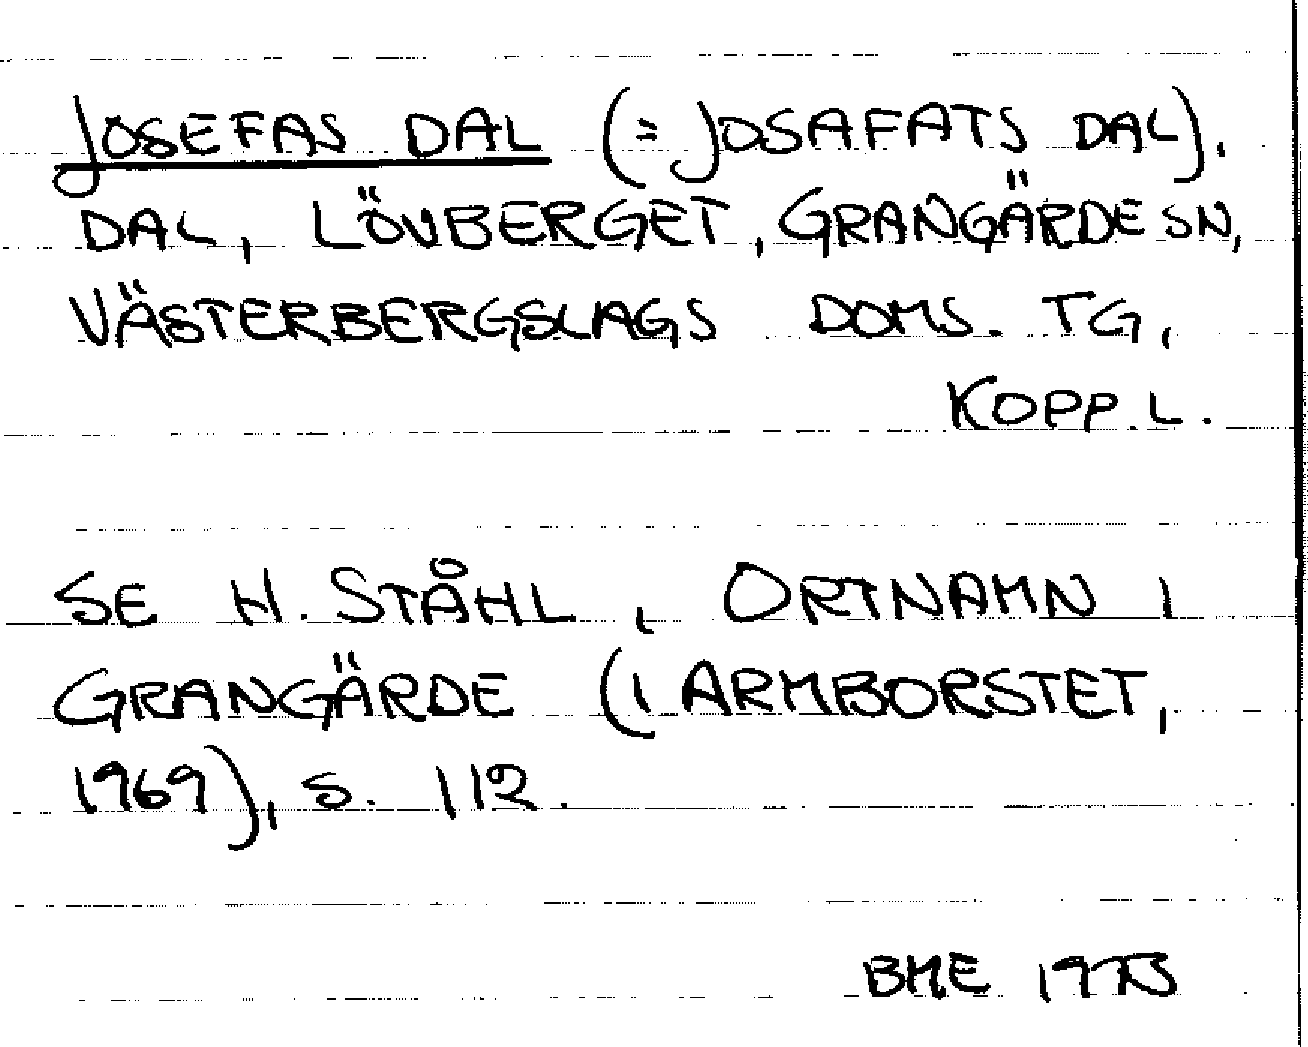 JOSEFAS DAL (= JOSAFATS DAL).
DAL, LÖVBERGET, GRANGÄRDE SN,
VÄSTERBERGSLAGS DOMS. TG,
KOPP. L.
SE H. STÅHL, ORTNAMN I
GRANGÄRDE (I ARMBORSTET,
1969), S. 112.
BME 1973